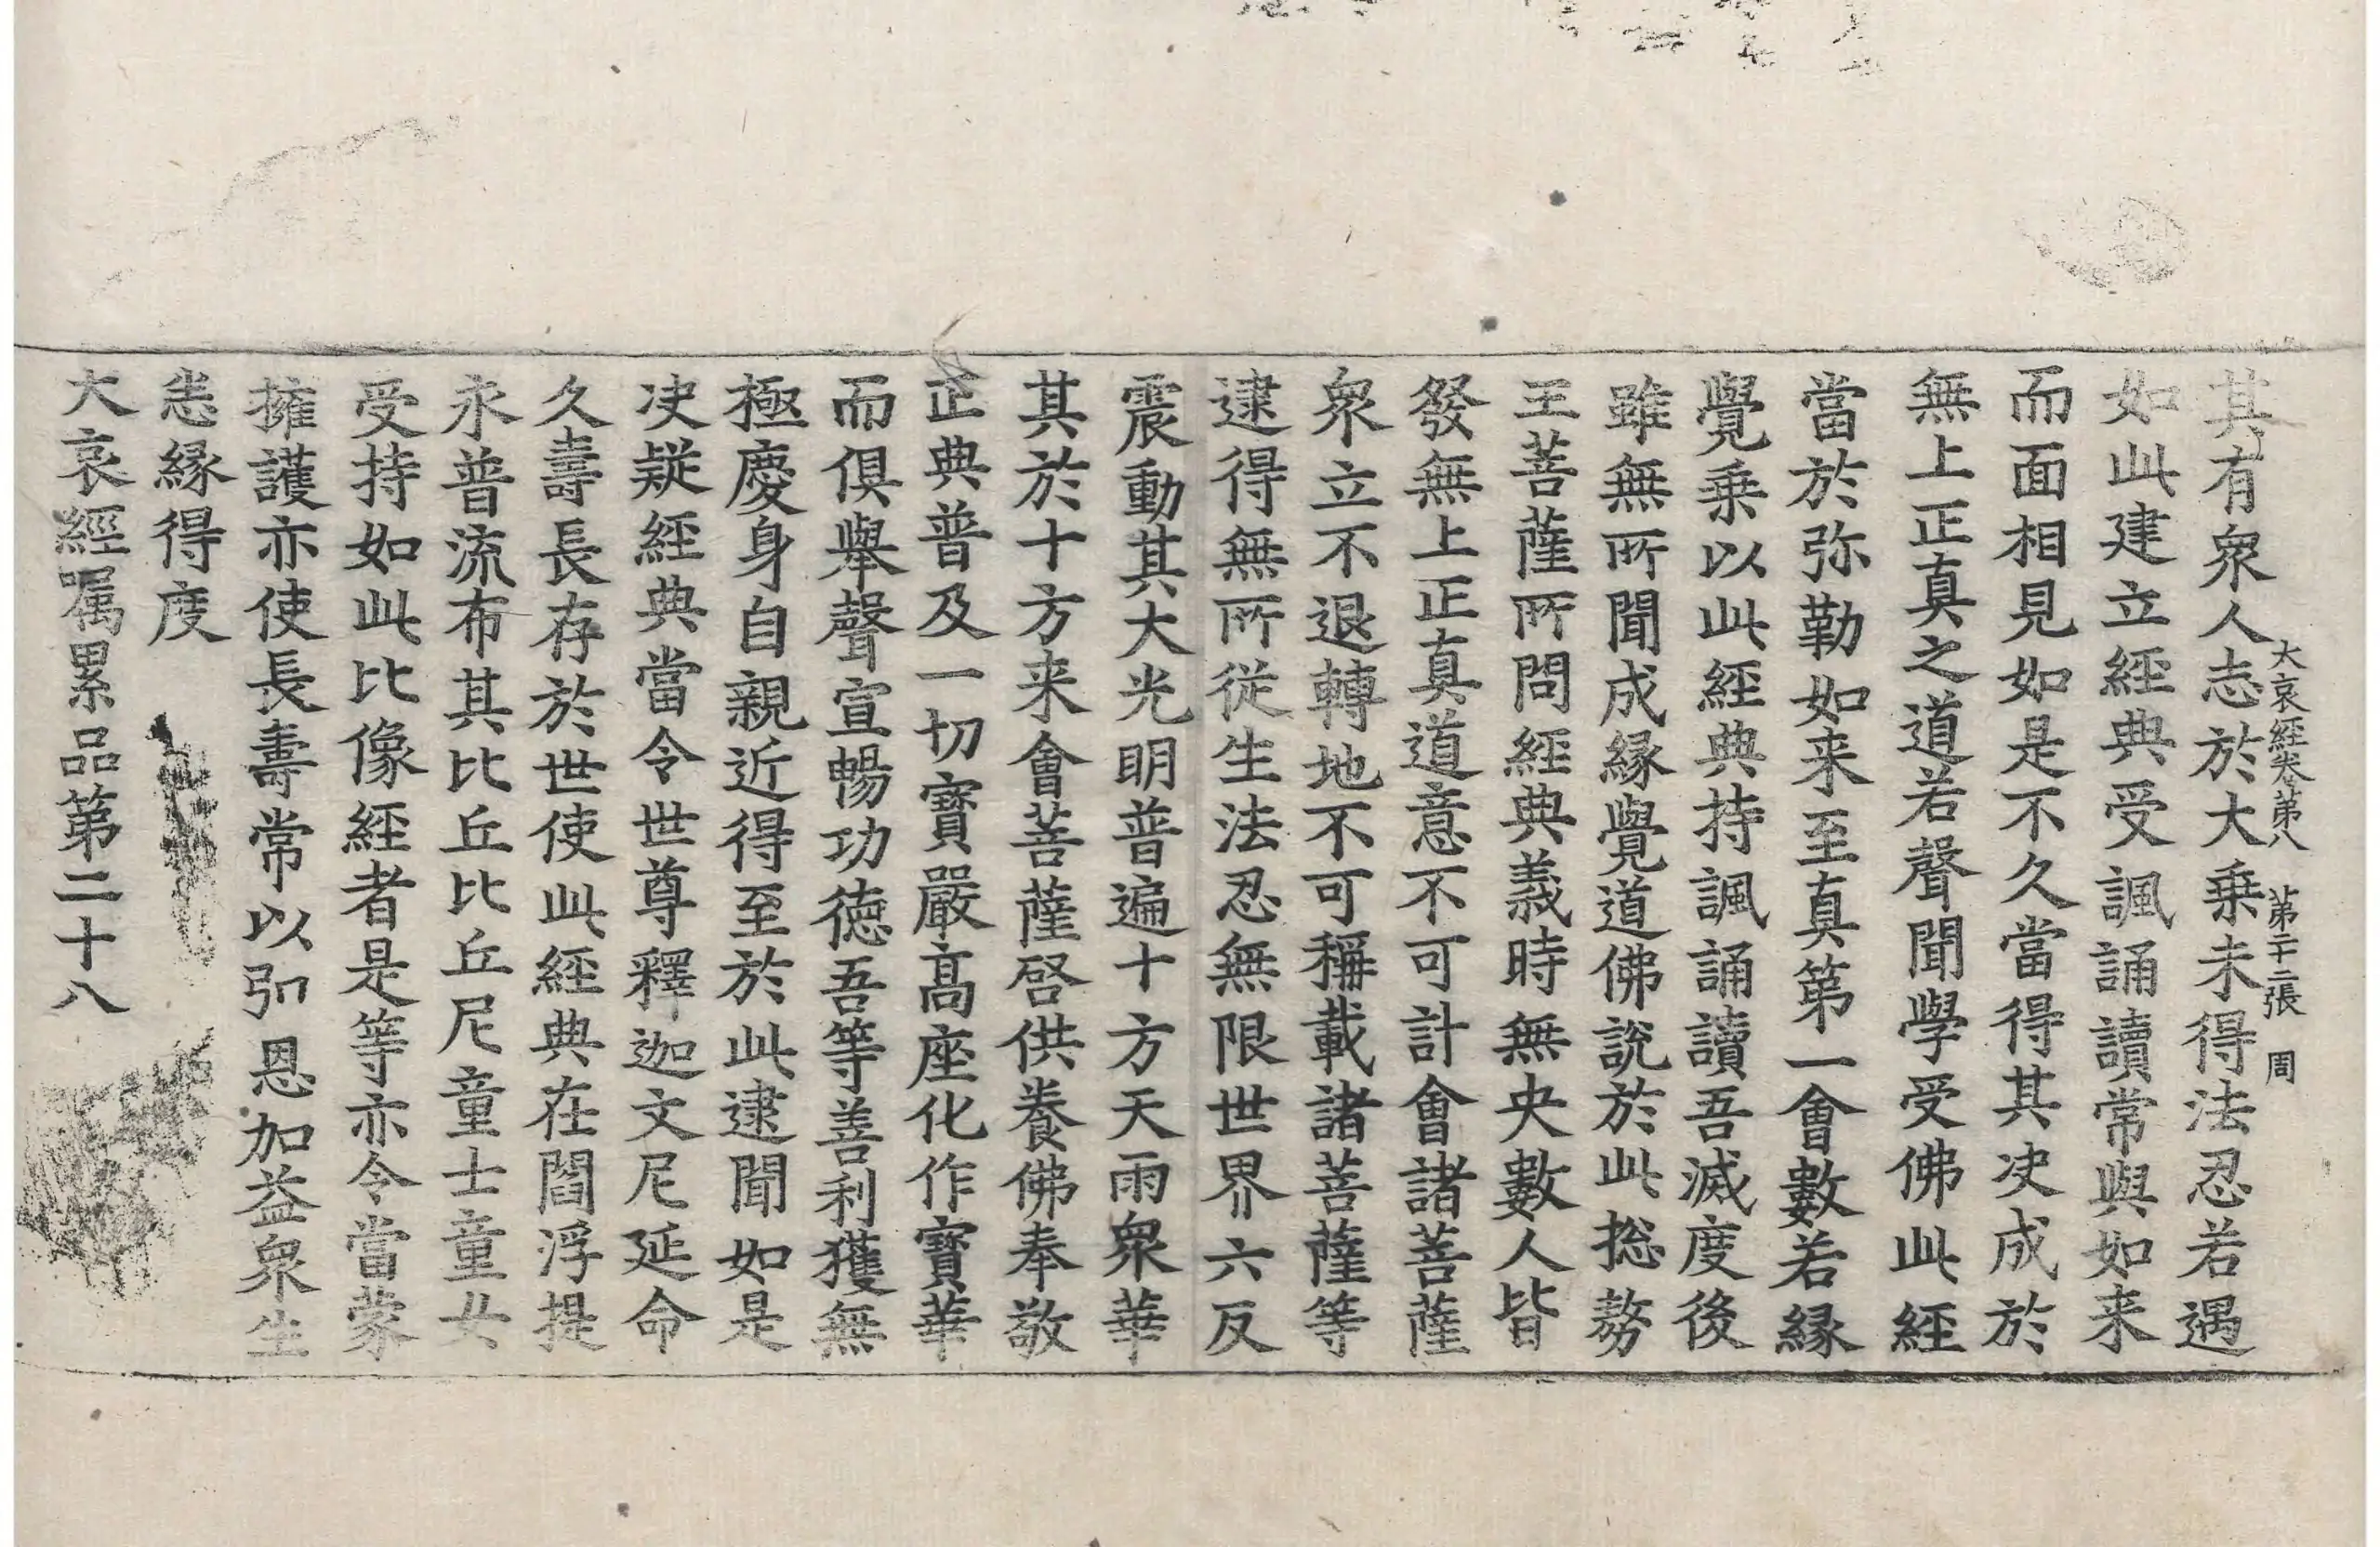 大哀經卷第八　第二十二張　周
其有衆人志於大乗未得法忍若遇
如此建立經典受諷誦讀常與如来
而面相見如是不久當得其决成於
無上正真之道若聲聞學受佛此經
當於弥勒如来至真第一會數若縁
覺乗以此經典持諷誦讀吾滅度後
雖無所聞成縁覺道佛說於此揔䓘
王菩薩所問經典義時無央數人皆
發無上正真道意不可計會諸菩薩
衆立不退轉地不可稱載諸菩薩等
逮得無所從生法忍無限世界六反
震動其大光明普遍十方天雨衆華
其於十方来會菩薩啓供養佛奉敬
正典普及一切寶嚴高座化作寶華
而俱舉聲宣暢功德吾等善利獲無
極慶身自親近得至於此逮聞如是
决疑經典當令世尊釋迦文尼延命
久壽長存於世使此經典在閻浮提
永普流布其比丘比丘尼童士童女
受持如此比像經者是等亦令當蒙
擁護亦使長壽常以弘恩加益衆生
恙縁得度
大哀經嘱累品第二十八